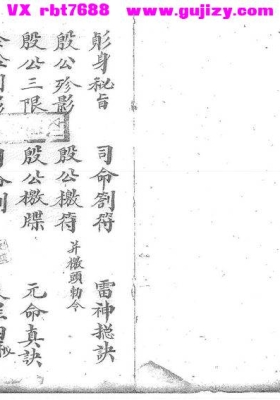 VX rbt7688 www.gujizy.com
彰身秘旨 司命劄符 雷神摠訣
殷公殄影 殷公檄符 并檄頭勅令
殷公三限 殷公檄牒 元命真訣